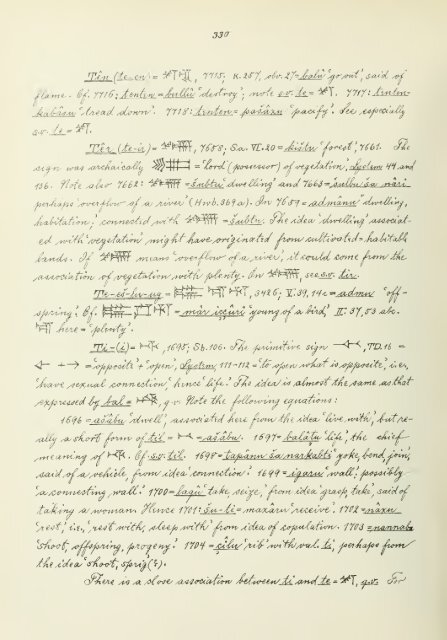 330
Tên (te-en) = 𒋼𒂗, 7715; K. 257, obv. 27 = balû 'go out', said of
flame. Cf. 7716: tenten = bullû 'destroy'; note s.v. te = 𒋼. 7717: tenten =
kabâsu 'tread down'. 7718: tenten = pašâxu 'pacify'. See especially
s.v. te = 𒋼.
Têr (te-ir) = 7658; Sa. VI. 20 = kištu 'forest', 7661. The
sign was archaically = 'lord (possessor) of vegetation', System, 44 and
136. Note also 7662: = šubtu 'dwelling' and 7663 = šulbu ša nâri
perhaps 'overflow of a river' (Hwb. 369 a). On 7659 = admânu 'dwelling,
habitation', connected with = šubtu. The idea 'dwelling' associat-
ed with 'vegetation' might have originated from cultivated = habitable
lands. If means 'overflow of a river', it could come from the
association of vegetation with plenty. On see s.v. dir.
Te-eš-lu-ug = 3426; V. 39, 14 c = admu 'off-
spring'. Cf. = mâr iççûri 'young of a bird', II. 37, 53 abc.
here = 'plenty'.
Ti-(i) = 1695; Sb. 106. The primitive sign TD. 16 =
← + → = 'opposite' + 'open', System, 111-112 = 'to open what is opposite', i.e.,
'have sexual connection', hence 'life'. The idea is almost the same as that
expressed by bal = q.v. Note the following equations:
1696 = ašâbu 'dwell', associated here from the idea 'live with', but re-
ally a short form of til = = ašâbu. 1697 = balâṭu 'life', the chief
meaning of Cf. s.v. til. 1698 = çapânu ša narkabti 'yoke, bend, join',
said of a vehicle, from idea 'connection'. 1699 = igaru 'wall', possibly
'a connecting wall'. 1700 = laqû 'take, seize', from idea 'grasp, take', said of
taking a woman. Hence 1701: šu-ti = maxâru 'receive'. 1702 = naxu
'rest', i.e., 'rest with, sleep with' from idea of copulation. 1703 = nannabu
'shoot, offspring, progeny'. 1704 = çîlu 'rib' with val. ti, perhaps from
the idea 'shoot, sprig (?).
There is a close association between ti and te = 𒋼, q.v. For